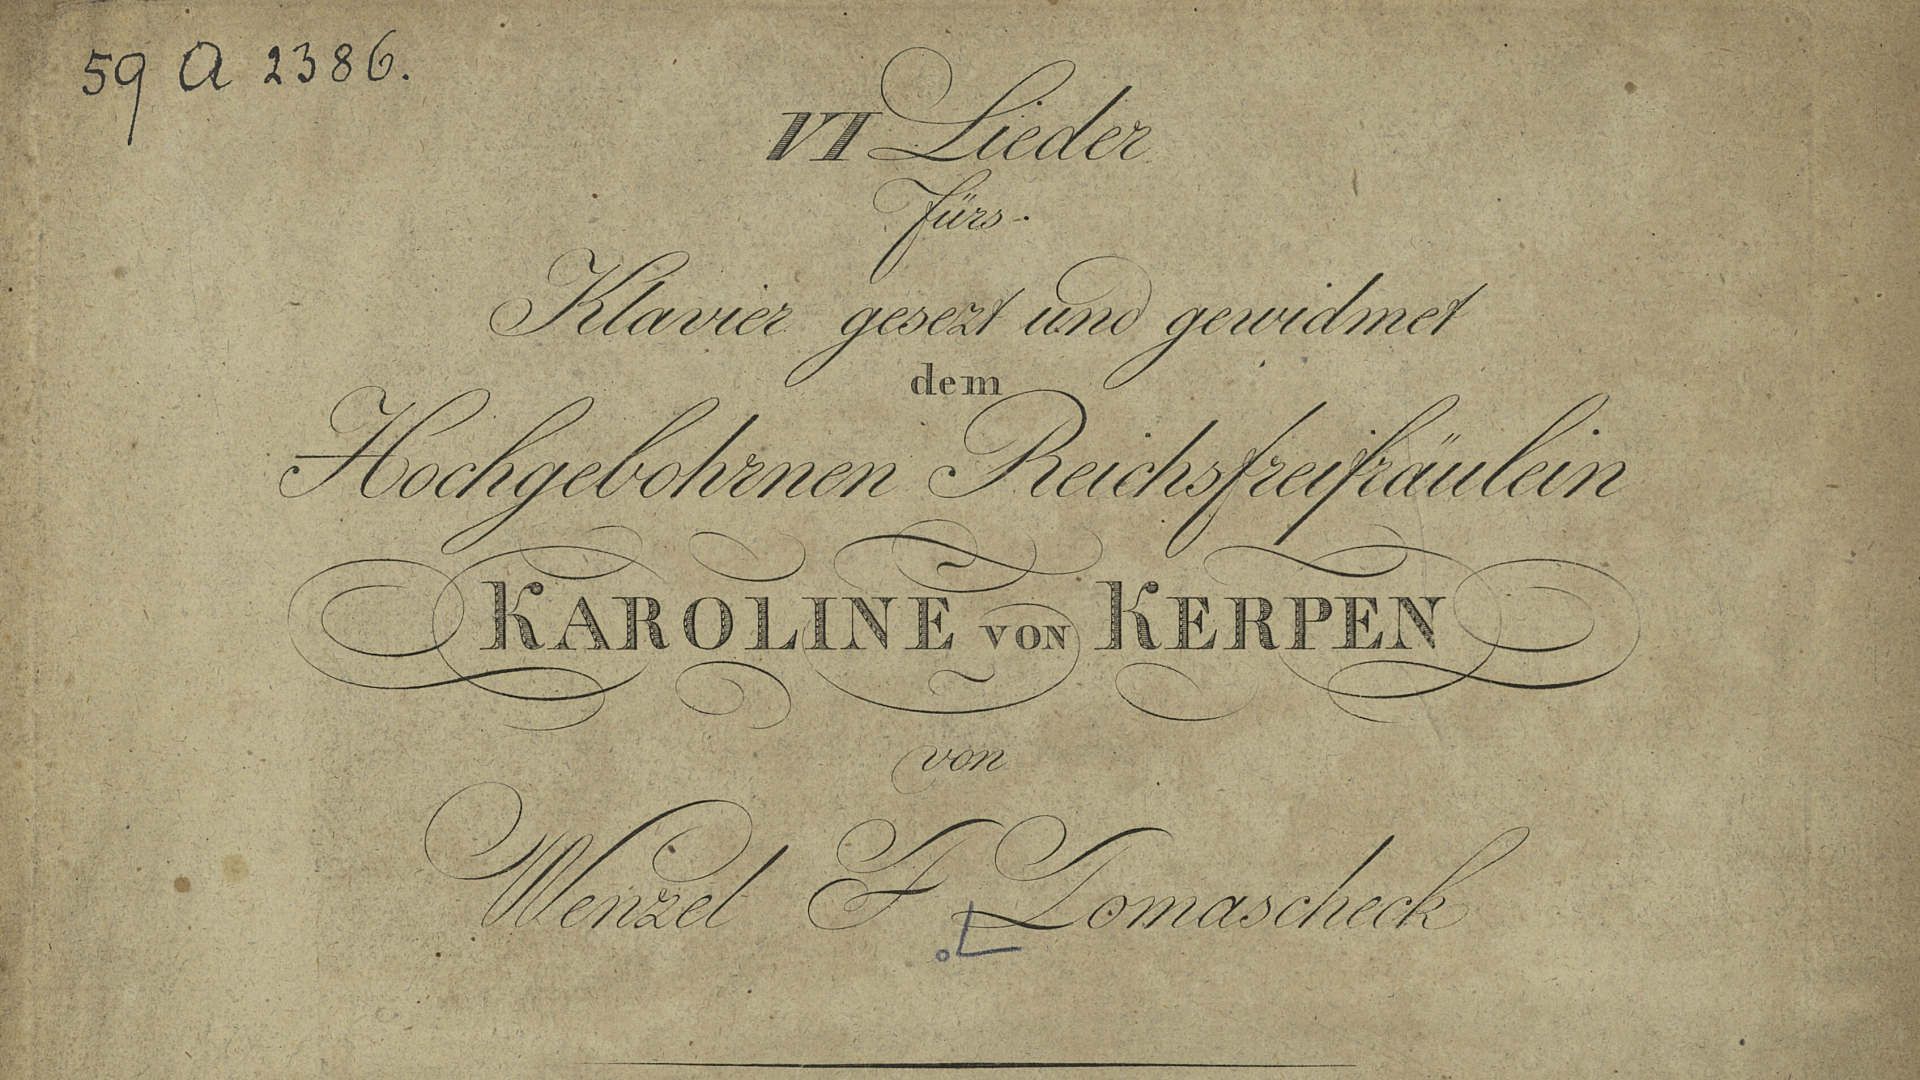 59 A 2386.
VI Lieder
fürs
Klavier gesezt und gewidmet
dem
Hochgebohrnen Reichsfreifräulein
KAROLINE VON KERPEN
von
Wenzel F Tomascheck